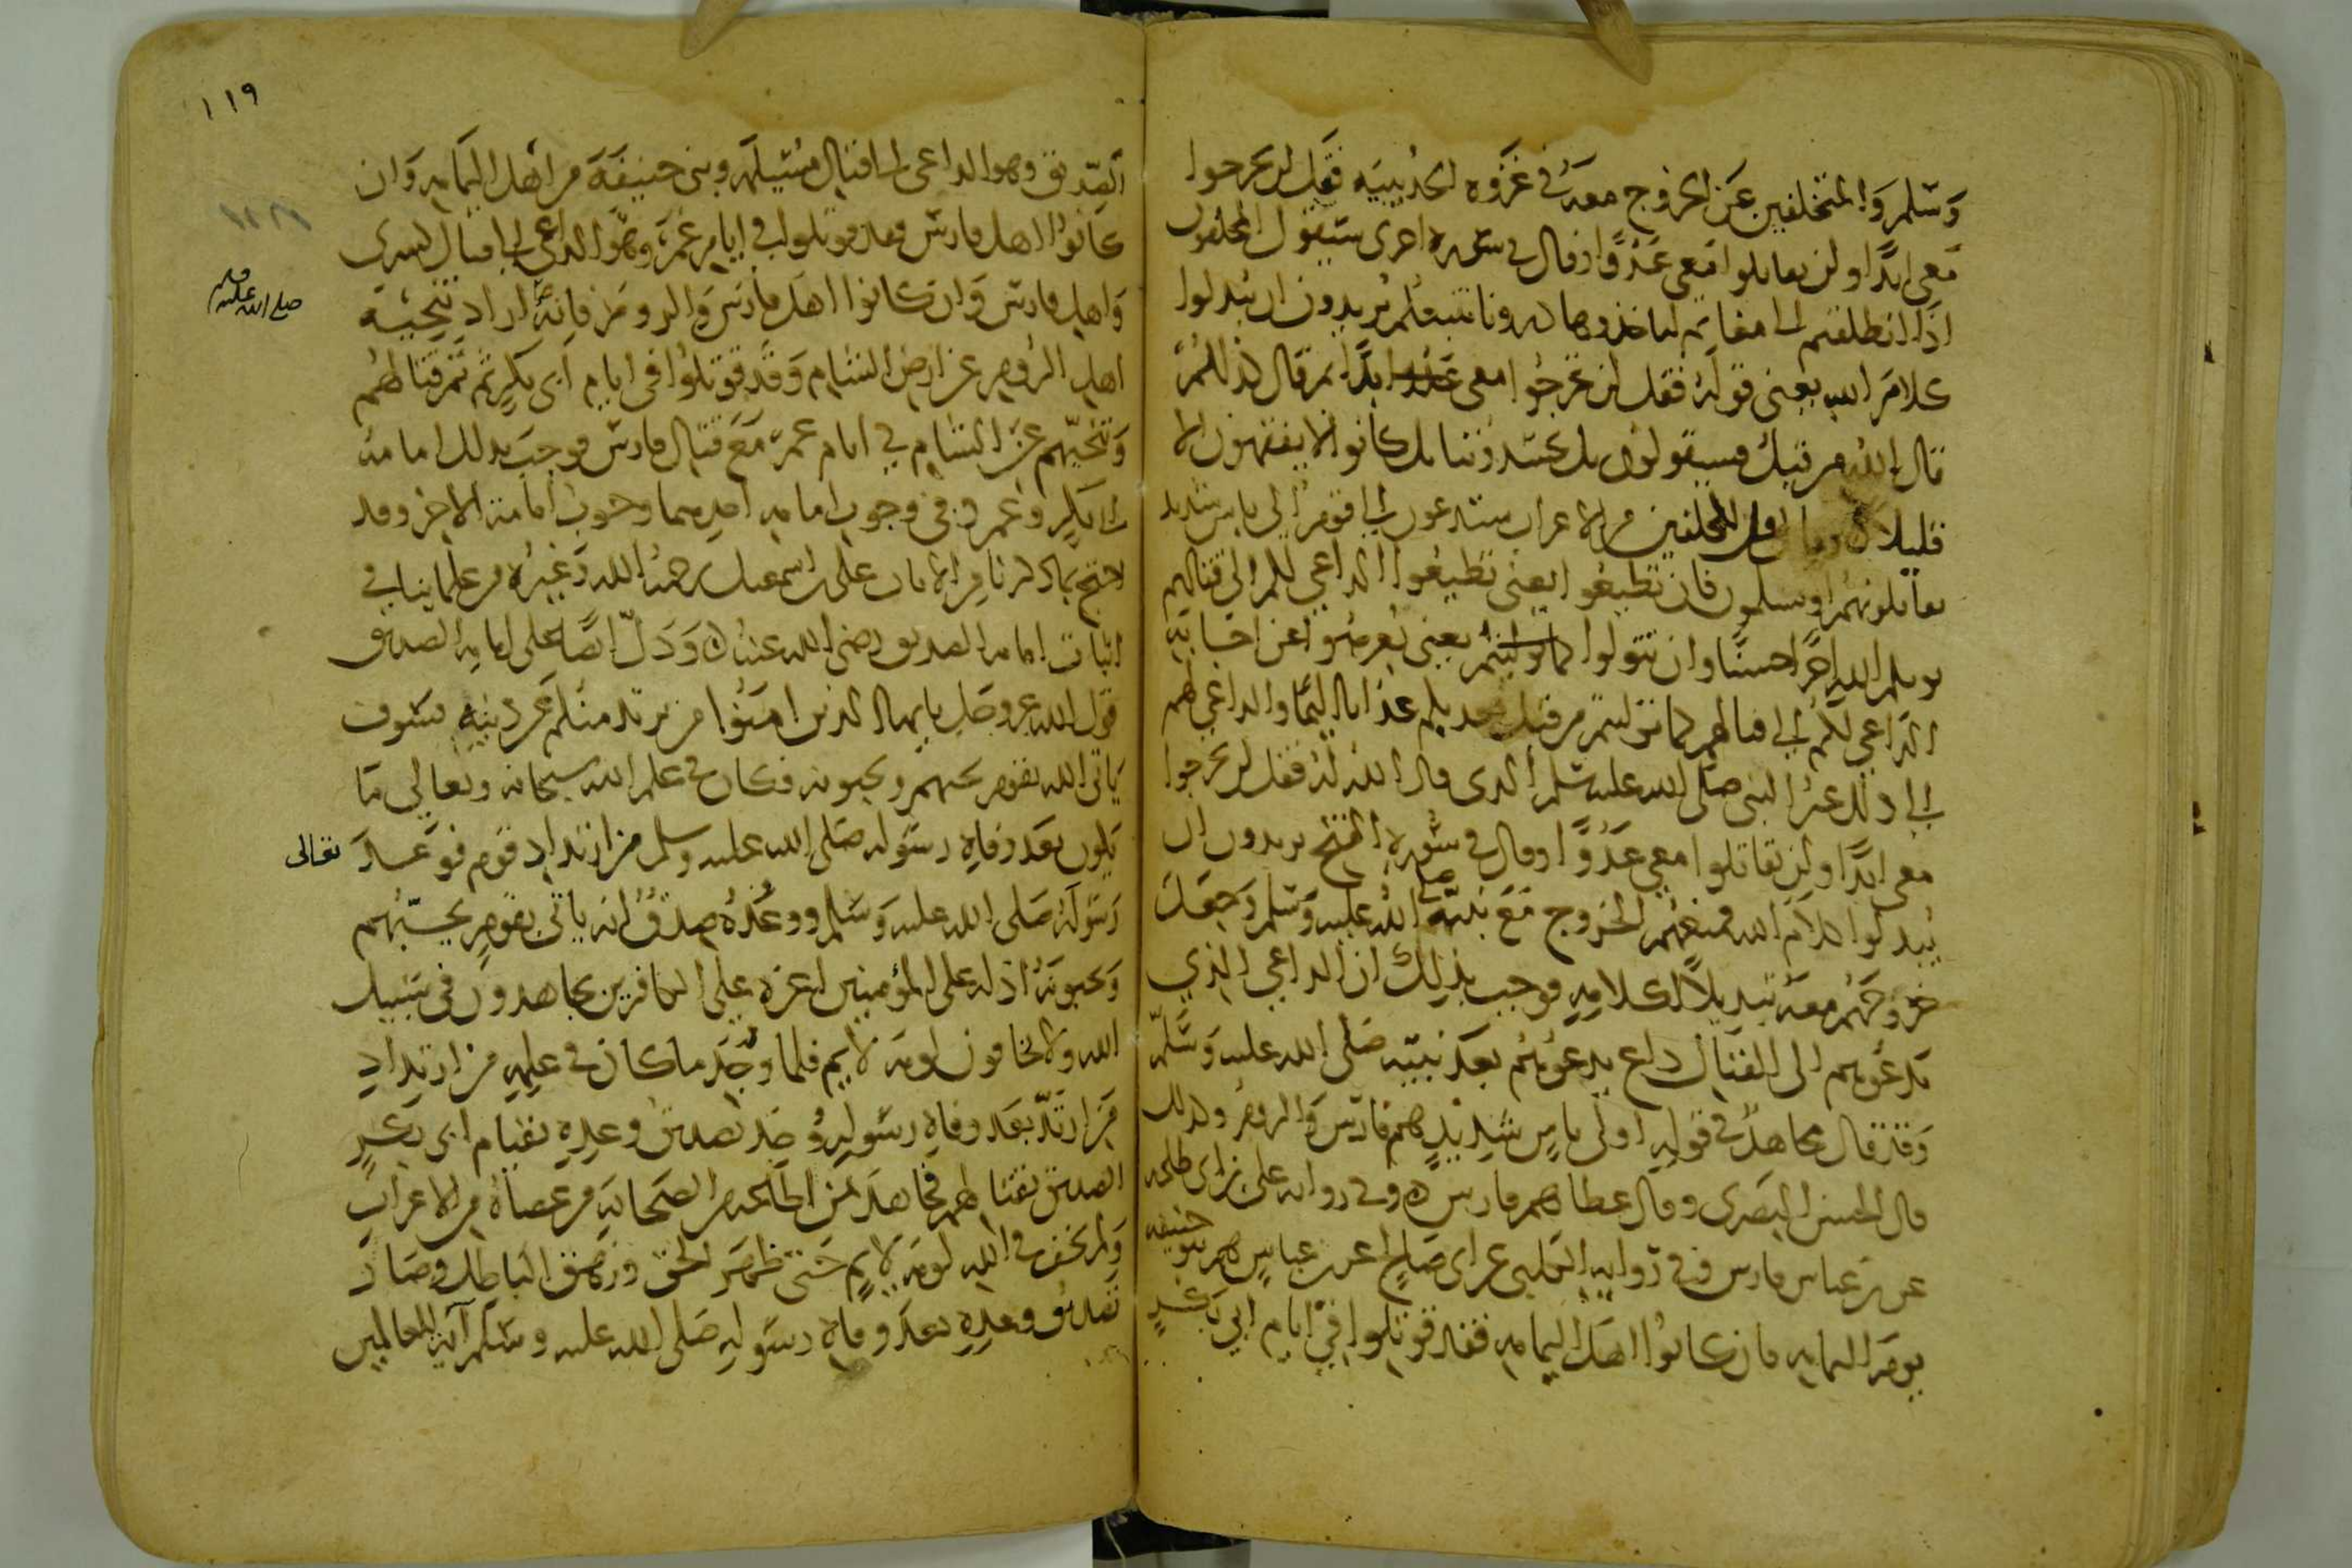 وسلم والمتخلفين عن الخروج معه في غزوه الحديبيه فقل لن تخرجوا
معي ابدا ولن تقاتلوا معي عدوا وقال في سوره اخرى سيقول المخلفون
اذا انطلقتم الى مغانم لتاخذوها ذرونا نتبعكم يريدون ان يبدلوا
كلام الله يعني قوله فقل لن تخرجوا معي ابدا ثم قال كذلكم
قال الله من قبل فسيقولون بل تحسدوننا بل كانوا لا يفقهون الا
قليلا وقال قل للمخلفين من الاعراب ستدعون الى قوم اولي باس شديد
تقاتلونهم او يسلمون فان تطيعوا يعني تطيعوا الداعي لكم الى قتالهم
يوتكم الله اجرا حسنا وان تتولوا كما توليتم يعني تعرضوا عن اجابة
الداعي لكم الى قتالهم كما توليتم من قبل يعذبكم عذابا اليما والداعي لهم
الى ذلك غير النبي صلى الله عليه وسلم الذي قال الله له فقل لن تخرجوا
معي ابدا ولن تقاتلوا معي عدوا وقال في سورة الفتح يريدون ان
يبدلوا كلام الله فمنعهم الخروج مع نبيه صلى الله عليه وسلم وجعل
خروجهم معه تبديلا لكلامه فوجب بذلك ان الداعي الذي
يدعوهم الى القتال داع يدعوهم بعد نبيه صلى الله عليه وسلم
وقد قال مجاهد في قوله اولى باس شديد هم فارس والروم وكذلك
قال الحسن البصري وقال عطا هم فارس وفي روايه علي بن ابي طلحه
عن بن عباس فارس وفي روايه الكلبي عن ابي صالح عن بن عباس هم بنو حنيفه
يوم اليمامه فان كانوا اهل اليمامه فقد قوتلوا في ايام ابي بكر
١١٩
الصديق وهو الداعي الى قتال مسيلمه وبني حنيفة من اهل اليمامه وان
كانوا اهل فارس فقد قوتلوا في ايام عمر وهو الداعي الى قتال كسرى
واهل فارس وان كانوا اهل فارس والروم فانه اراد تنحية
صلى الله عليه
اهل الروم عن ارض الشام وقد قوتلوا في ايام ابي بكر ثم تم قتالهم
وتنحيتهم عن الشام في ايام عمر مع قتال فارس فوجب بذلك امامة
ابي بكر وعمر وفي وجوب امامه احدهما وجوب امامة الاخر وقد
احتج بما ذكرنا من الايات علي بن اسمعيل رحمه الله وغيره من علماينا في
اثبات امامه الصديق رضي الله عنه ودل ايضا على امامه الصديق
قول الله عز وجل يا يها الذين امنوا من يرتد منكم عن دينه فسوف
ياتي الله بقوم يحبهم ويحبونه فكان في علم الله سبحانه وتعالى ما
يكون بعد وفاه رسوله صلى الله عليه وسلم من ارتداد قوم فوعد
تعالى
رسوله صلى الله عليه وسلم ووعده صدق انه ياتي بقوم يحبهم
ويحبونه اذله على المؤمنين اعزه على الكافرين يجاهدون في سبيل
الله ولا يخافون لومه لايم فلما وجد ما كان في علمه من ارتداد
من ارتد بعد وفاه رسوله وجد تصديق وعده بقيام ابي بكر
الصديق بقتالهم فجاهد بمن اطاعه من الصحابه من عصاه من الاعراب
ولم يخف في الله لومه لايم حتى ظهر الحق وزهق الباطل وصار
تصديق وعده بعد وفاه رسوله صلى الله عليه وسلم آية للعالمين